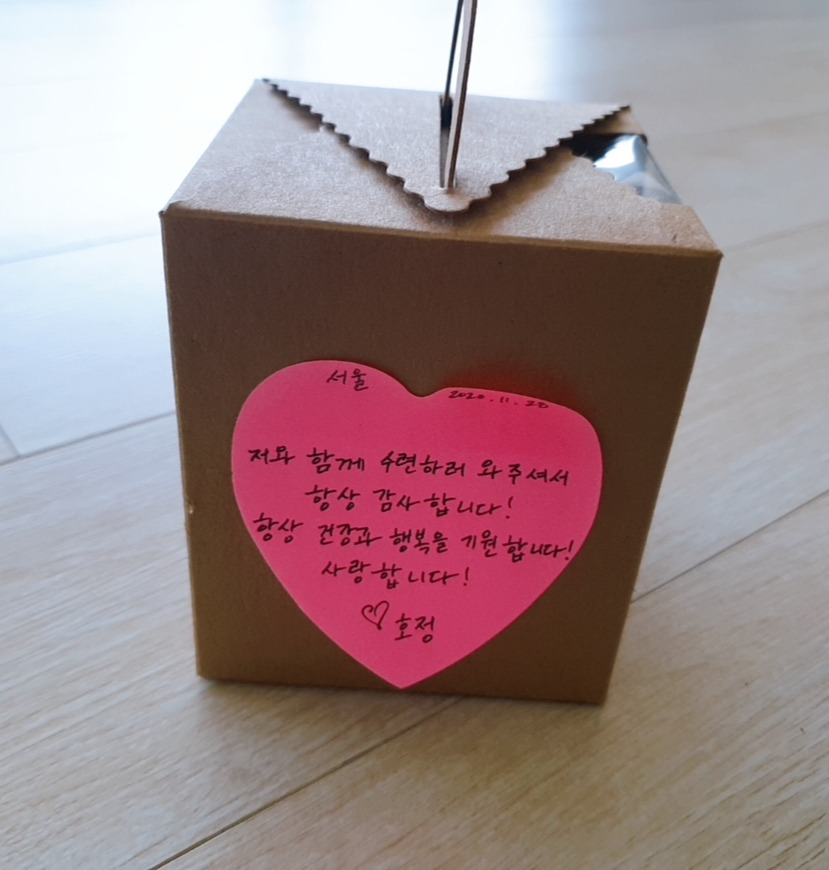 서울
2020.11.28
저와 함께 수련하러 와주셔서
항상 감사합니다!
항상 건강과 행복을 기원합니다!
사랑합니다!
♡ 호정